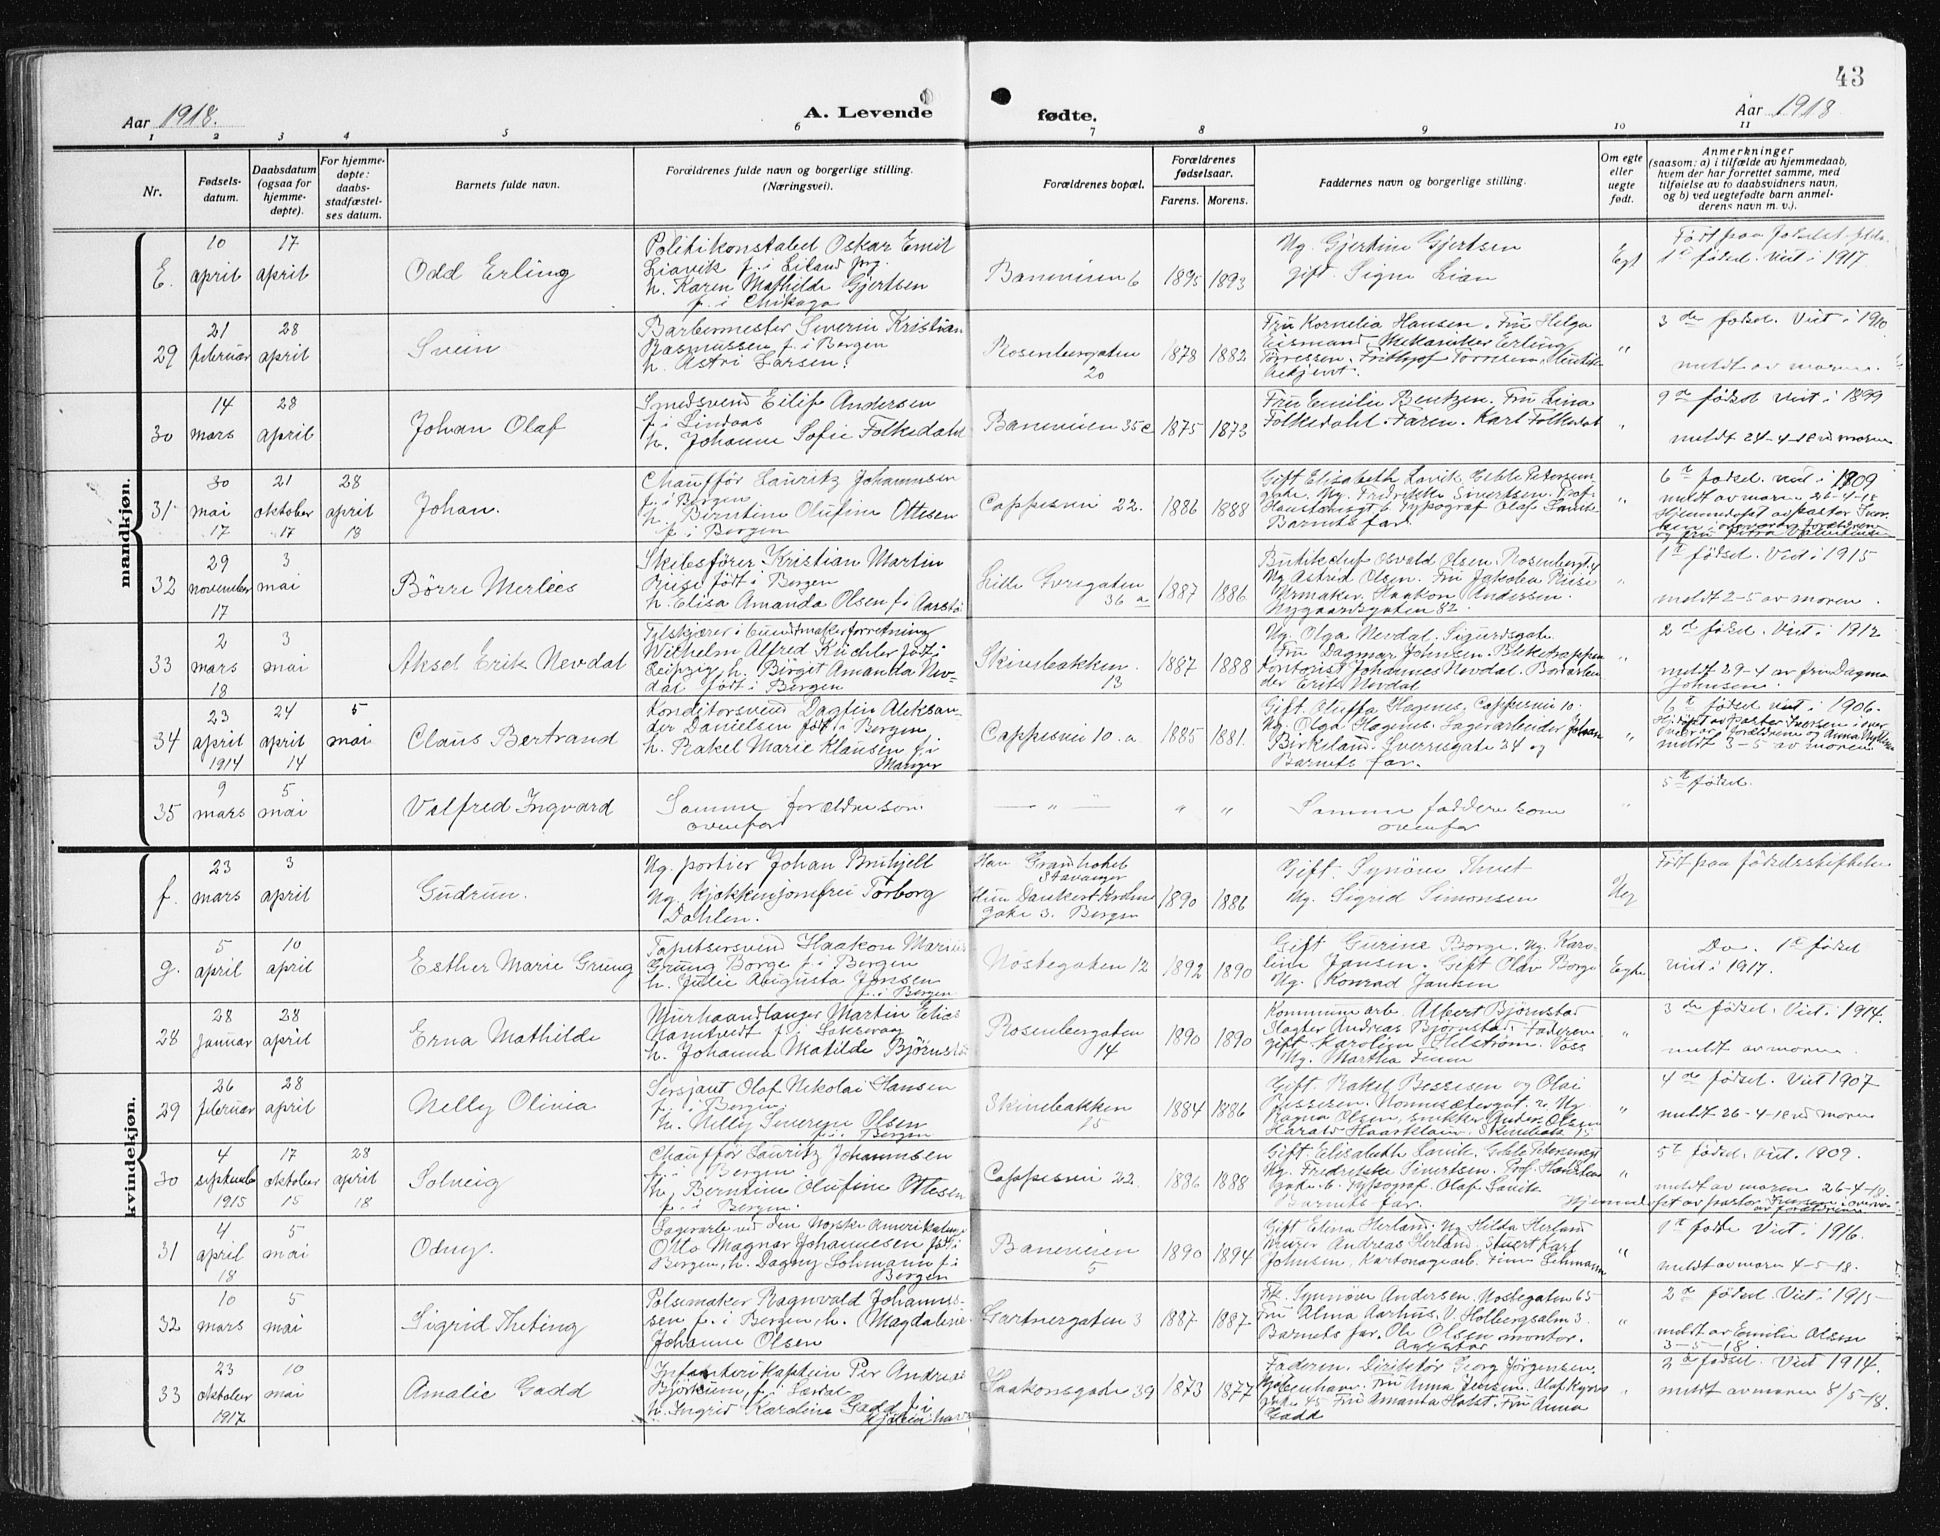 43
Aar 1918. A. Levende fødte. Aar 1918
1 2 3 4 5 6 7 8 9 10 11
Nr.
Fødsels-datum.
Daabsdatum (ogsaa for hjemme-døpte).
For hjemme-døpte: daabs-stadfæstel-ses datum.
Barnets fulde navn.
Forældrenes fulde navn og borgerlige stilling. (Næringsvei).
Forældrenes bopæl.
Forældrenes fødselsaar.
Farens. Morens.
Faddernes navn og borgerlige stilling.
Om egte eller uegte født.
Anmerkninger (saasom: a) i tilfælde av hjemmedaab, hvem der har forrettet samme, med tilføielse av to daabsvidners navn, og b) ved uegtefødte barn anmel-derens navn m. v.).
mandkjøn.
E. 10 april 17 april
Odd Erling
Politikonstabel Oskar Emil
Liavik f. i Eiland
h. Karen Mathilde Gjertsen
f. i Chikago
Baneveien 6 1895 1893
Ug. Gjertine Gjertsen
gift. Signe Lian
Egt
Født paa
1ste fødsel. Viet i 1917
29 21 februar 28 april
Svein
Barbermester Severin Kristian
Rasmussen f. i Bergen
h. Astri Larsen.
Rosenbergaten 20 1878 1882
Fru Kornelia Hansen. Fru Helga
Eismand. Mekaniker Erling
"
3de fødsel. Viet i 1910
meldt av moren
30 14 mars 28 april
Johan Olaf
Smedsvend Eilif Andersen
f. i Lindaas
h. Johanne Sofie Folkedahl
Baneveien 35c 1875 1873
Fru Emilie Bentzen. Fru Lina
Folkedahl. Faren. Karl Folkedahl
"
9de fødsel Viet i 1899
meldt 24-4-18 v moren
31 30 mai 17 21 oktober 17 28 april 18
Johan.
Chauffør Lauritz Johannesen
f. i Bergen
h. Berntine Olufine Ottesen
f. i Bergen
Cappesvei 22. 1886 1888
Gift Elisabeth Lavik, Geble Petersens
gate. Ug. Fredrikke Sivertsen. Prof.
Hansteensgt 6 Typograf Olaf Lavik
Barnets far.
"
6te fødsel. viet i 1809
meldt av moren 26-4-18
Hjemmedøpt av pastor Iver-
32 29 november 17 3 mai
Børre Merlees
Skibsfører Kristian Martin
Riise født i Bergen
h. Elisa Amanda Olsen f. i Aarstad
Lille Øvregaten 36 a 1887 1886
Butikchef Osvald Olsen. Rosenbergt. 4
Ug Astrid Olsen. Fru Jakoba Riise
Urmaker Haakon Andersen.
Nygaardsgaten 82.
"
1ste fødsel. Viet i 1915
meldt 2-5 av moren.
33 2 mars 18 3 mai
Aksel Erik Nevdal
Tilskjærer i buntmakerforretning
Wilhelm Alfred Küchler født i
Leipzig, h. Birgit Amanda Nev-
dal født i Bergen
Skivebakken 13 1887 1888
Ug. Olga Nevdal. Sigurdsgate.
Fru Dagmar Johnsen. Bleketrappen
Kontorist Johannes Nevdal. Borarbei
der Erik Nevdal
"
2de fødsel. Viet i 1912
meldt 29-4 av fru Dagmar
Johnsen.
34 23 april 1914 24 april 14 5 mai
Claus Bertrand
Konditorsvend Dagfin Aleksan-
der Danielsen født i Bergen
h. Rakel Marie Klausen f. i
Manger
Cappesvei 10. a 1885 1881.
Gift. Oluffa Hagenes. Cappesvei 10.
Ug. Olga Hagenes. Lagerarbeider Johan
Birkeland. Sverresgate 24 og
Barnets far.
"
6te fødsel viet i 1906.
Hj.døpt av pastor Iversen i over
vær av forældrene og Anna
meldt 3-5 av moren
35 9 mars 5 mai
Valfred Ingvard
Samme forældre som
ovenfor
— " — " "
Samme faddere som
ovenfor
"
5te fødsel.
kvindekjøn.
f. 23 mars 3 april
Gudrun.
Ug. portier Johan Bruhjell
Ug. kjøkkenjomfru Torborg
Dahlen.
Han Grand hotel
Stavanger
Hun Dankert Krohns
gate 3. Bergen
1890 1886
Gift. Synøve Thuet
Ug. Sigrid Simonsen
Ueg
Født paa fødselsstiftelsen
g. 5 april 10 april
Esther Marie Grung
Tapetsersvend Haakon Marius
Grung Borge f. i Bergen
h. Julie Augusta Jansen
f. i Bergen
Nøstegaten 12 1892 1890
Gift Gurine Borge. Ug. Karo-
line Jansen. Gift Olav Borge
Ug. Konrad Jansen
Egte
Do. 1ste fødsel
viet i 1917.
28 28 januar 28 april
Erna Mathilde
Murhaandlanger Martin Elias
Hamtvedt f. i Saksevaag
h. Johanna Matilde Bjørnstad
Rosenbergaten 14 1890 1890
Kommunearb. Albert Bjørnstad
Slagter Andreas Bjørnstad. Faderen
gift Karoline Helstrøm. Voss
Ug. Martha
"
3de fødsel. Viet i 1914.
meldt av moren.
29 26 februar 28 april
Nelly Olivia
Sersjant Olaf Nikolai Hansen
f. i Bergen
h. Nelly Severine Olsen
f. i Bergen
Skivebakken 15 1884 1886
Gift. Rakel Bessesen og Olai
Jessesen. Nonnesætergat. 2. Ug
Olsen, snikker Anders Olsen
Harald
"
4de fødsel. Viet 1907
meldt 26-4-18 v moren
30 4 septemb 1915 17 oktober 15 28 april 18
Solveig
Chauffør Lauritz Johannesen
f. i Bergen
h. Berntine Olufine Ottesen
f. i Bergen.
Cappesvei 22. 1886 1888
Gift. Elisabeth Lavik. Geble Petersensgt
Ug. Fredrikke Sivertsen. Prof. Hansteens
gate. 6. Typograf. Olaf Lavik
Barnets far.
"
5te fødsel. Viet. 1909.
meldt av moren 26-4-18.
Hjemmedøpt av pastor Iversen i overvær
av forældrene
31 4 april 18 5 mai
Odny.
Lagerarb. ved den Norske Amerikalinje
Otto Magnar Johannesen født i
Bergen, h. Dagny Lohmann f. i
Bergen
Baneveien 5 1890 1894
Gift Elina Herland. Ug Hilda Herland
Murer Andreas Herland. Stuert Karl
Johnsen, Kartonagearb. Finn Lehmann
"
1ste føds Viet i 1916.
meldt av moren 4-5-18.
32 10 mars 5 mai
Sigrid Theting
Pølsemaker Ragnvald Johannes-
sen f. i Bergen, h. Magdalene
Johanne Olsen
Gartnergaten 3 1887 1887
Frk. Synnøve Andersen. Nøstegaten 65
Fru Alma Aarhus. V. Holbergsalm 3.
Barnets far. Ole Olsen montør.
"
2de fødsel. Viet i 1915
meldt av Emilie Olsen
3-5-18.
33 23 oktober 1917 10 mai
Amalie Gadd
Infanterikaptein Per Andreas
Bjørkum, f. i Lærdal
h. Ingrid Karoline Gadd f. i
Kjøbenhavn
Haakonsgade 39 1873 1877
Faderen. Direktør Georg Jørgensen,
Kjøbenhavn. Fru Anna Jensen, Olaf Kyrres
gate 45 Fru Amanta Holst. Fru Anna
Gadd
"
2de fødsel. Viet 1914.
meldt av moren 8/5-18.